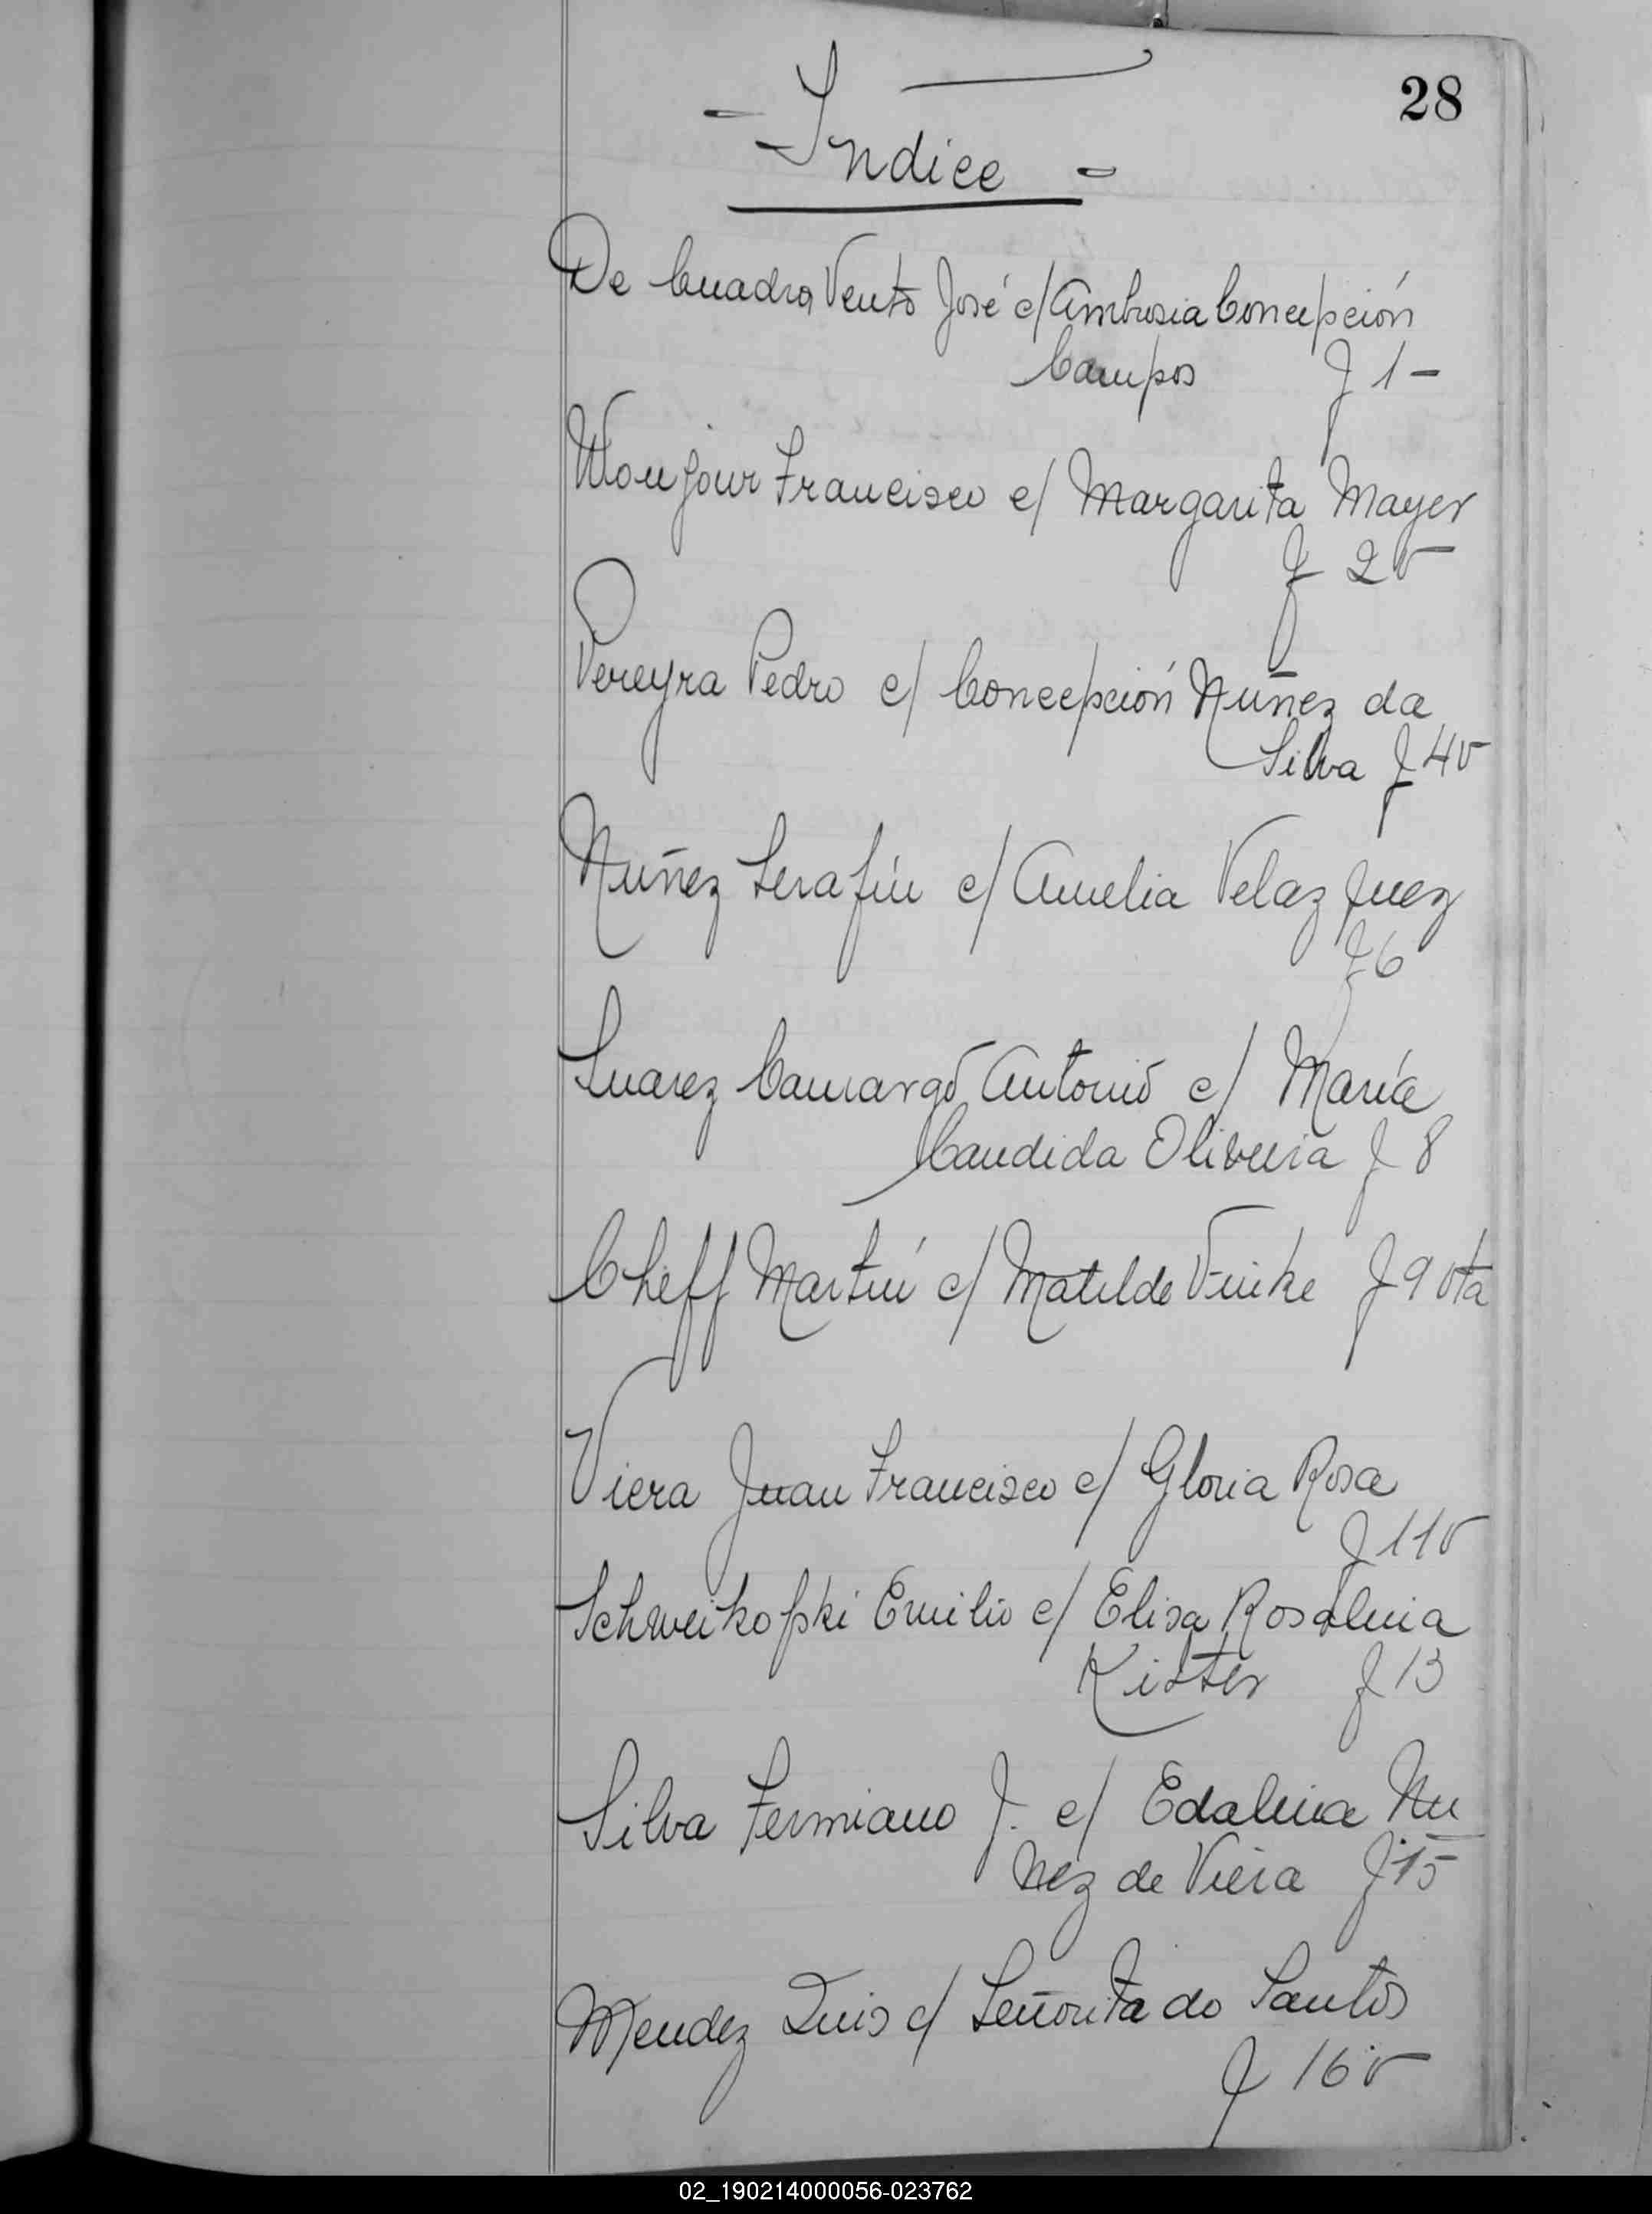 28
- Indice -
De Cuadra Vento José c/ Ambrosia Concepción
Campos f 1-
Monjour Francisco c/ Margarita Mayer
f 2v
Pereyra Pedro c/ Concepción Nuñez da
Silva f 4v
Nuñez Serafin c/ Amelia Velazquez
f 6
Suarez Camargo Antonio c/ María
Candida Oliveira f 8
Cheff Martín c/ Matilde Vinke f 9 vta
Viera Juan Francisco c/ Gloria Rosa
f 11v
Schweikofski Emilio c/ Elisa Rosalina
Kister f 13
Silva Fermiano J. c/ Edalina Nu
ñez de Viera f 15
Mendez Luis c/ Señorita do Santos
f 16v
02_190214000056-023762